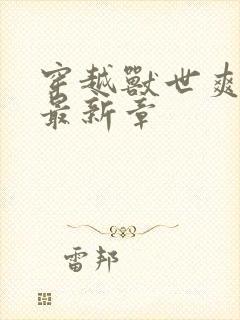 穿越獸世爽
最新章
雷邦